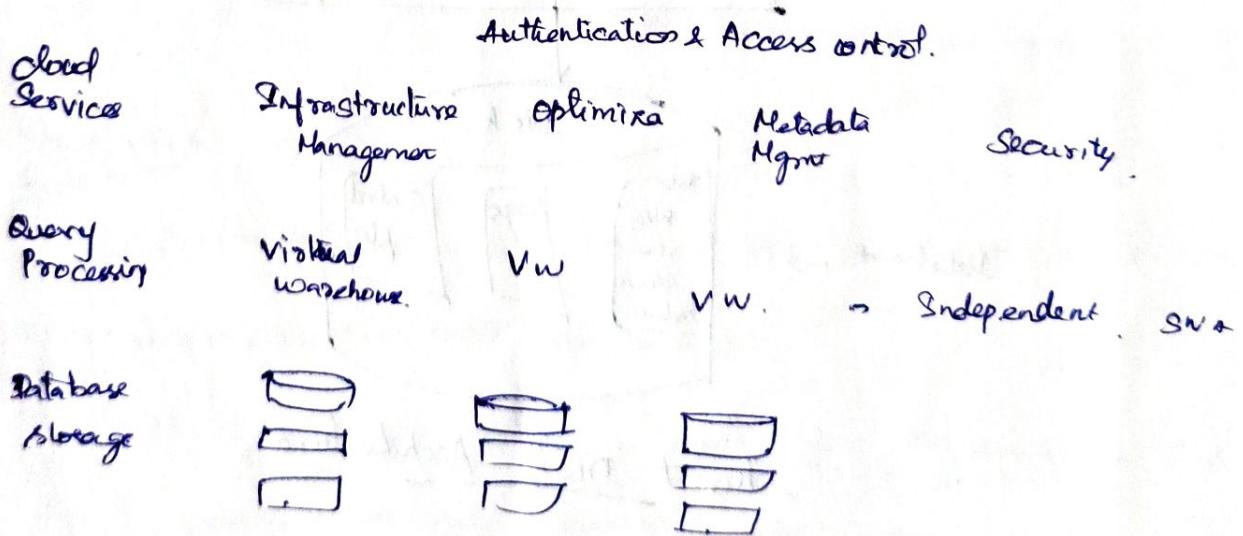 Authentication & Access control.
Cloud
Services
Infrastructure
Management
Optimiza
Metadata
Mgmt
Security.
Query
Processing
Virtual
warehouse.
VW
VW.
- Independent.
Database
storage